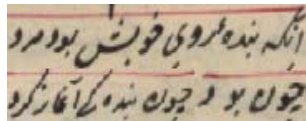 آنکه بنده عروی خویش بود مرد
چون بود و چون بنده کے آغاز کرد